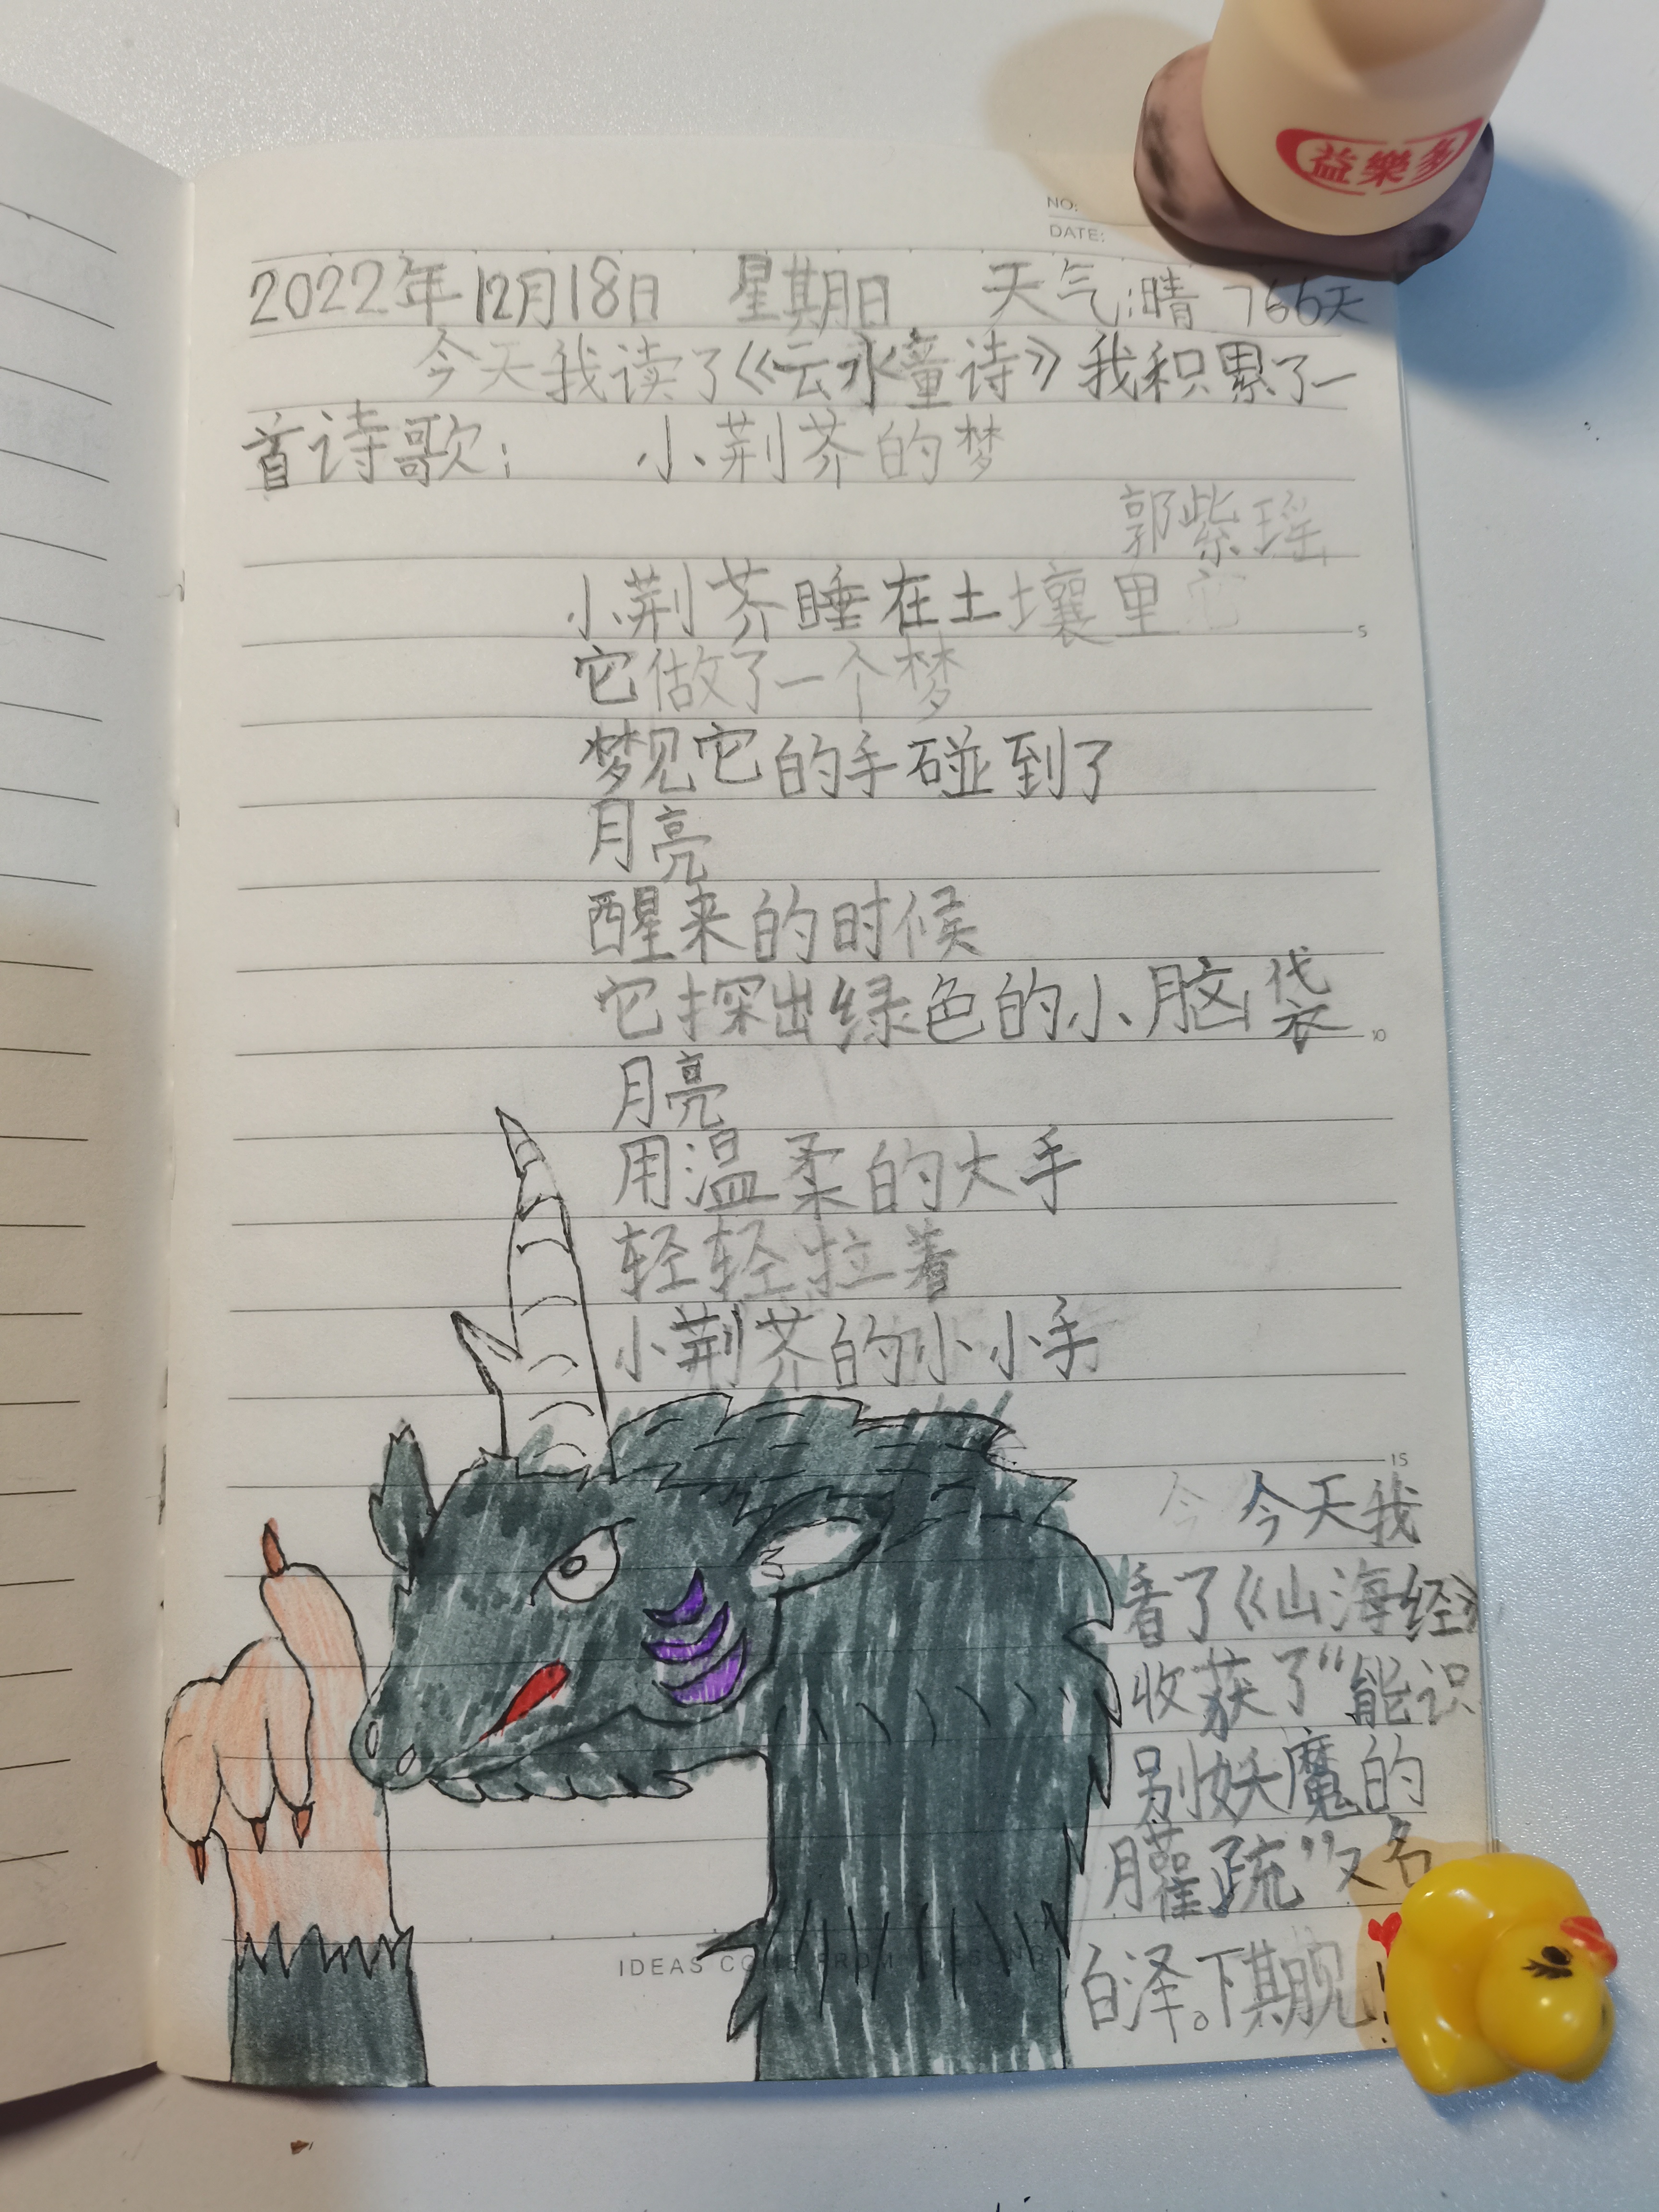 益樂多
NO:
DATE:
2022年12月18日 星期日 天气:晴 766天
今天我读了《云水童诗》我积累了一
首诗歌: 小荆芥的梦
郭紫瑶
小荆芥睡在土壤里
它做了一个梦
梦见它的手碰到了
月亮
醒来的时候
它探出绿色的小脑袋
月亮
用温柔的大手
轻轻拉着
小荆芥的小小手
今天我
看了《山海经》
收获了“能识
别妖魔的
臛疏”又名
白泽。下期见
IDEAS COME FROM
5
10
15